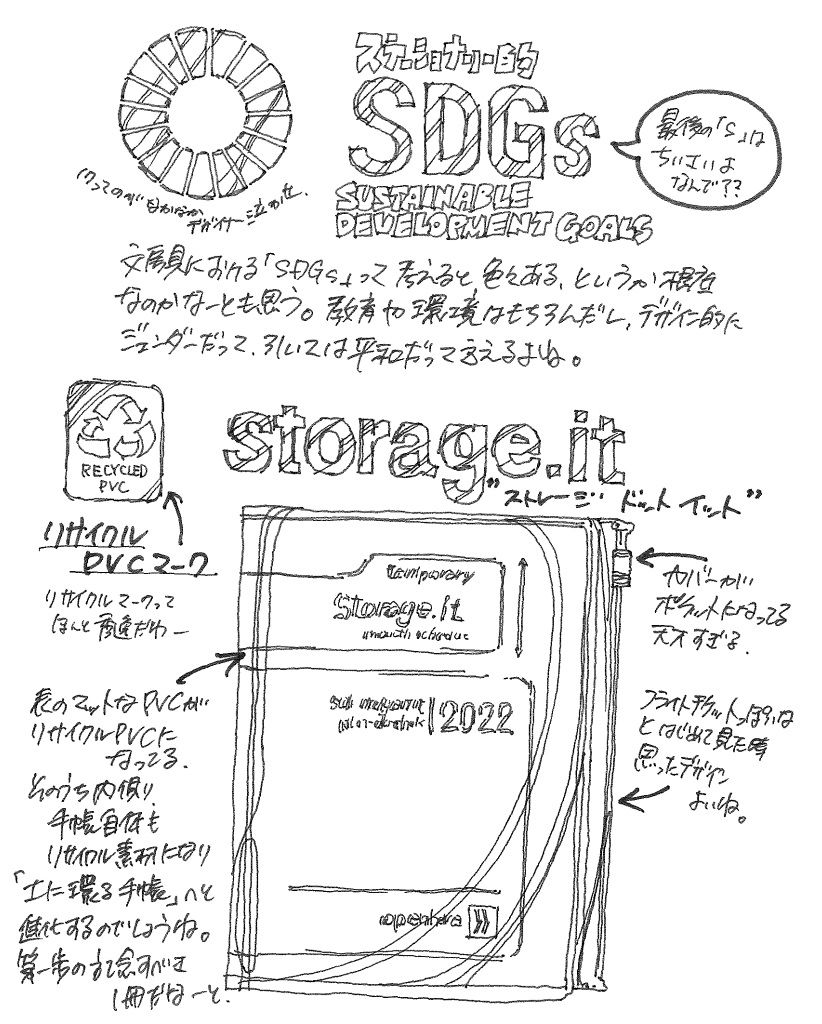 ステーショナリー的
SDGs
SUSTAINABLE
DEVELOPMENT GOALS
最後の「S」は
ちいさいよ
なんで??
なかなか
デザイナー泣かせ.
文房具における「SDGs」って考えると、色々ある、というか根底
なのかなーとも思う。教育や環境はもちろんだし、デザイン的に
ジェンダーだって、引いては平和だって言えるよね。
RECYCLED
PVC
リサイクル
PVCマーク
リサイクルマークって
ほんと
storage.it
"ストレージ ドット イット"
temporary
storage.it
2022
open here
カバーが
ポケットになってる
天才すぎる.
フライトチケットっぽいな
とはじめて見た時
思ったデザイン
よいね。
表のマットなPVCが
リサイクルPVCに
なってる.
そのうち内側り
手帳自体も
リサイクル素材になり
「土に環る手帳」へと
進化するのでしょうね。
第一歩の記念すべき
1冊だなーと.